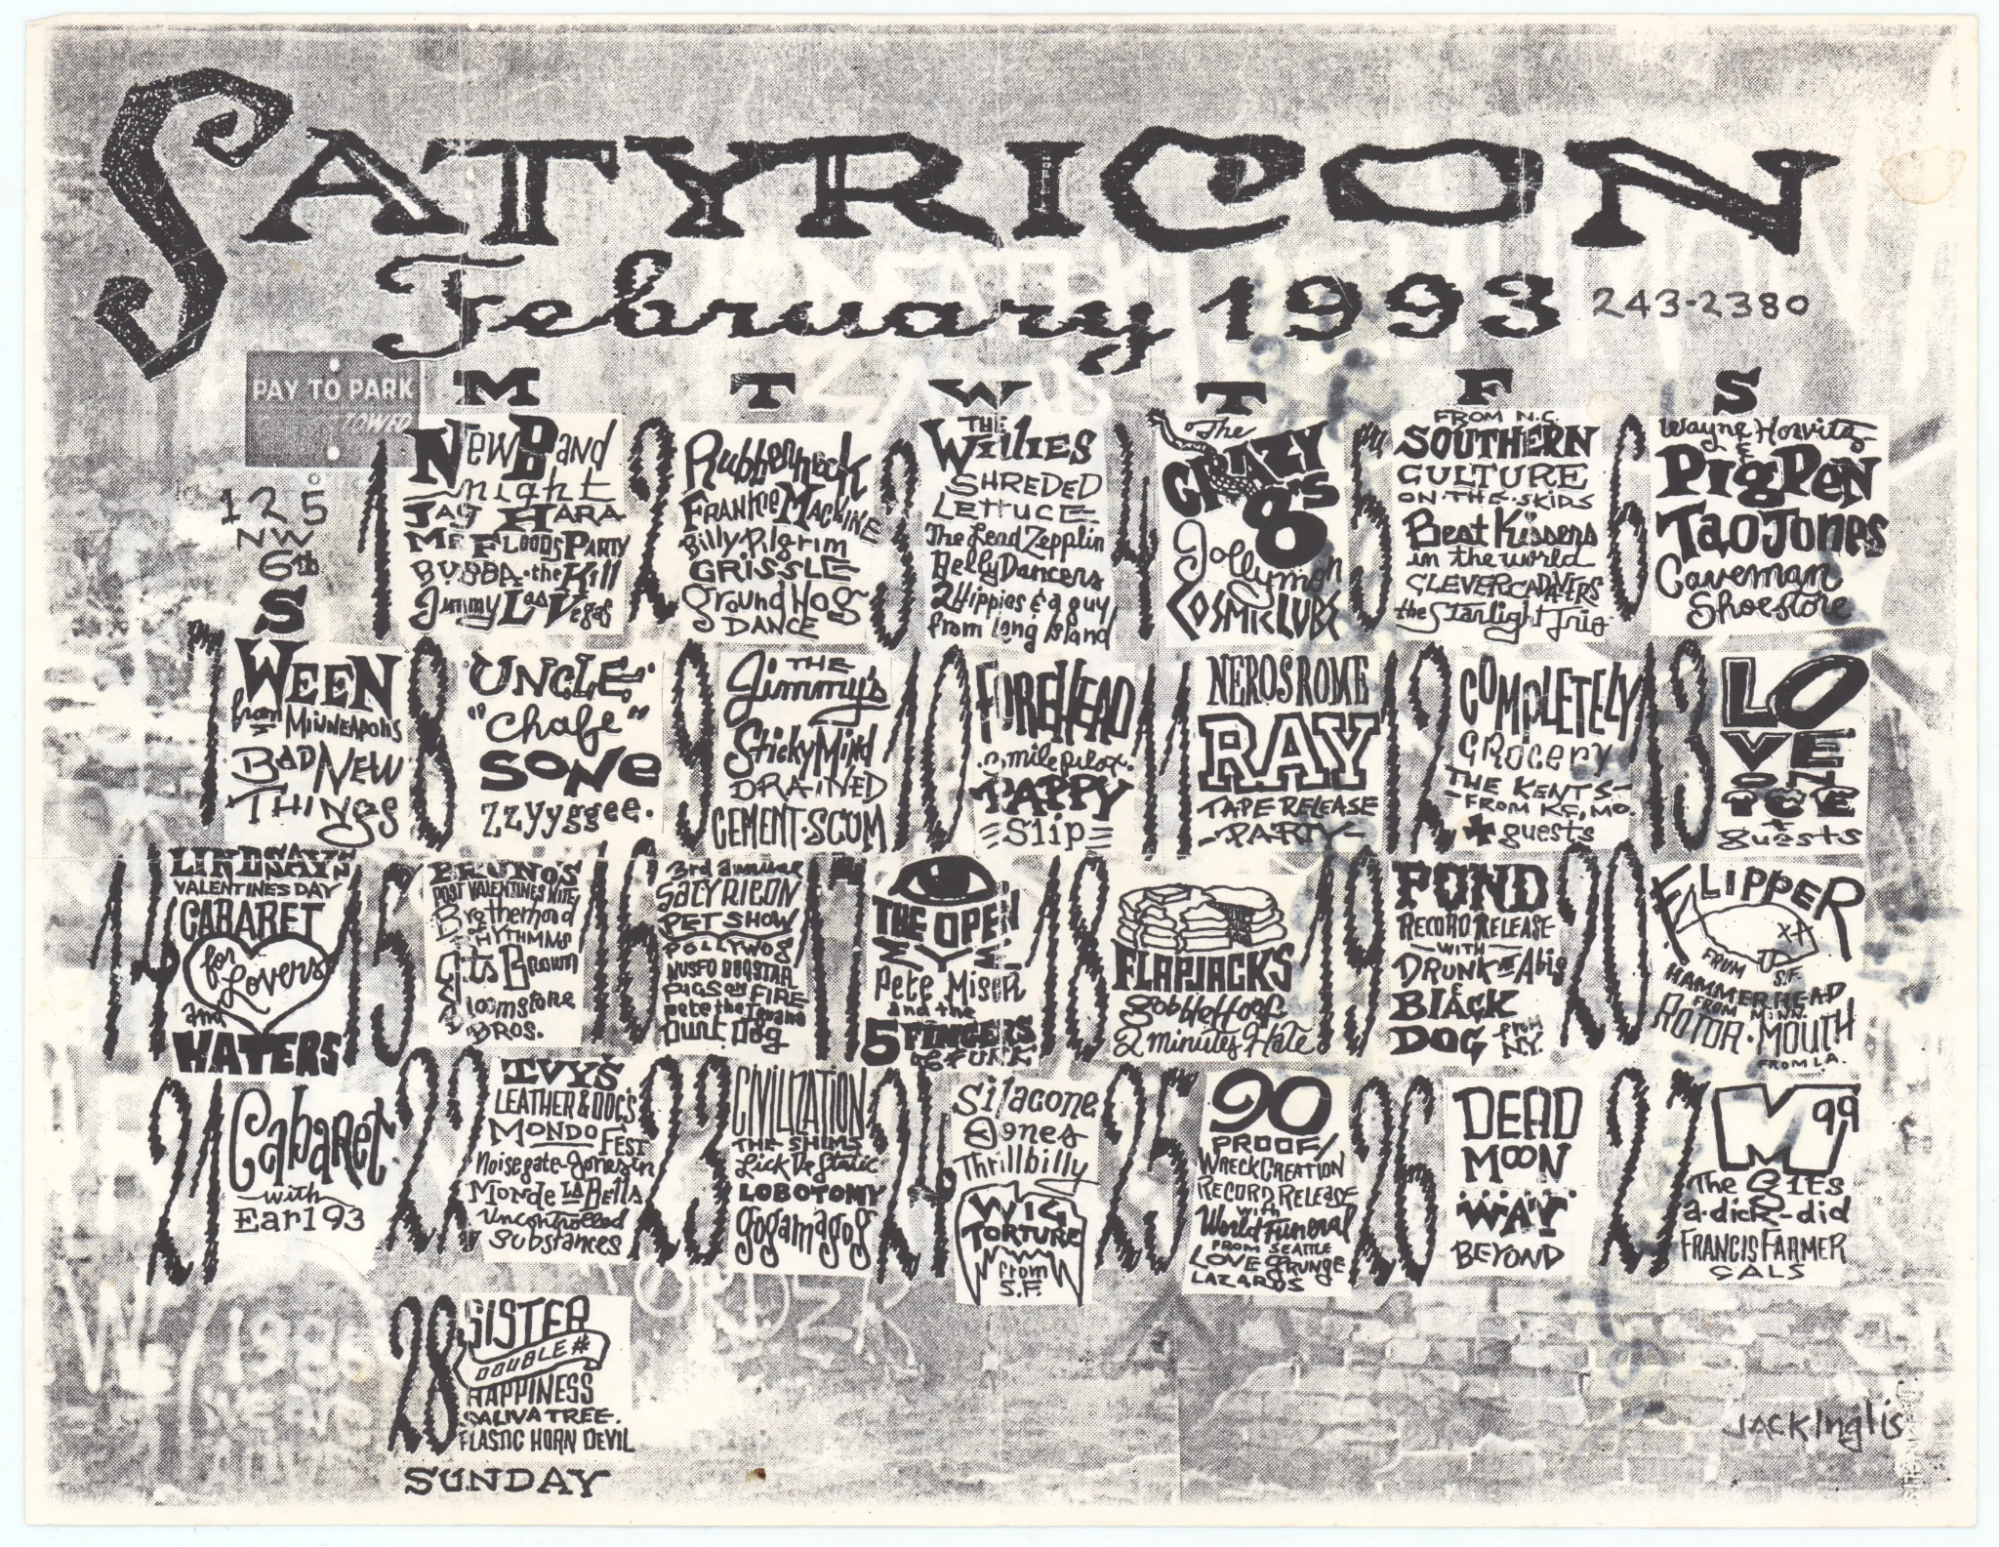 SATYRICON
February 1993 243-2380
PAY TO PARK
TOWED
125
NW
6th
M T W T F S
S
1
New Band
night
JAG HARA
MR FLOODS PARTY
BUBBA the Kill
Jimmy Las Vegas
2
Rubberneck
FRANKIE MACHINE
Billy Pilgrim
GRISSLE
Ground Hog
DANCE
3
THE
Willies
SHREDED
LETTUCE
The Lead Zepplin
Belly Dancers
2 Hippies & a guy
from Long Island
4
The
CRAZY
8's
8
Jollymon
COSMICLUBS
5
FROM N.C.
SOUTHERN
CULTURE
ON THE SKIDS
Best Kissers
in the world
CLEVER CADAVERS
the Starlight Trio
6
Wayne Horvitz
&
PigPen
Tao Jones
Caveman
Shoestore
7
WEEN
from MINNEAPOLIS
BAD NEW
THINGS
8
"UNCLE"
"Chafe"
SONE
zzyyggee.
9
THE
Jimmy's
Sticky Mind
DRAINED
CEMENT·SCUM
10
FOREHEAD
3 mile pilot
PAPPY
=Slip=
11
NEROS ROME
RAY
TAPE RELEASE
-PARTY-
12
COMPLETELY
GROCERY
THE KENTS
-FROM KC, MO.
+ guests
13
LO
VE
ON
ICE
+
guests
14
LINDSAY'S
VALENTINES DAY
CABARET
for
Lovers
and
HATERS
15
BRUNO'S
POST VALENTINES NITE
Brotherhood
RHYTHMNS
Gus Brown
&
Gloomstone
BROS.
16
3rd annual
SATYRICON
PET SHOW
POLLYWOG
NUSFO BOOSTAR
PIGS ON FIRE
pete the Iguana
Aunt Dog
17
THE OPEN
EYE
Pete Miser
and the
5 FINGERS
of FUNK
18
FLAPJACKS
gobblehoof
2 minutes Hate
19
POND
RECORD RELEASE
-WITH-
DRUNK at Abis
&
BLACK
DOG from
N.Y.
20
FLIPPER
FROM
S.F.
HAMMERHEAD
FROM MINN.
ROTOR·MOUTH
FROM L.A.
21
Cabaret
-with-
Earl 93
22
IVY'S
LEATHER & DOC'S
MONDO FEST
Noisegate-Jonesin
Monde La Bella
Uncontrolled
Substances
23
CIVILIZATION
THE SHIMS
Lick the Static
LOBOTOMY
gogamagog
24
Silacone
Jones
Thrillbilly
WIG
TORTURE
from
S.F.
25
90
PROOF/
WRECKCREATION
RECORD RELEASE
with
World Funeral
FROM SEATTLE
LOVE GRUNGE
LAZARDS
26
DEAD
MOON
WAY
BEYOND
27
M 99
The GIES
a-dick-did
FRANCIS FARMER
GALS
28
SISTER
DOUBLE
HAPPINESS
SALIVA TREE.
PLASTIC HORN DEVIL
SUNDAY
JACK Inglis